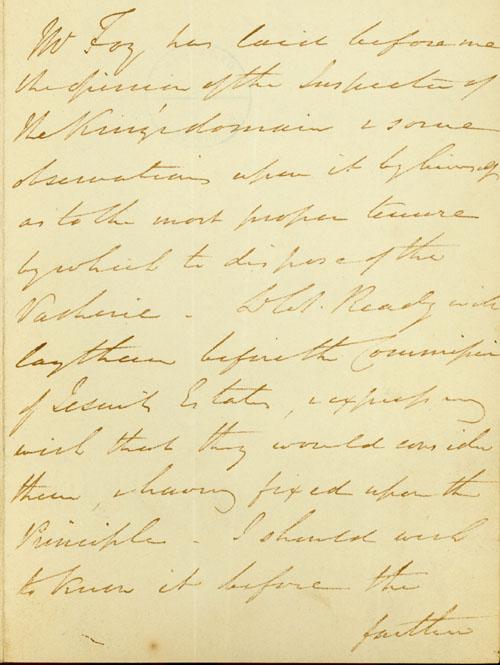 Mr Foy has laid before me
the opinion of the Inspector of
the King's domain & some
observations upon it by himself
as to the most proper tenure
by which to dispose of the
Vacherie - Col. Ready will
lay them before the Commission
of Jesuits Estates, & express my
wish that they would consider
them, & having fixed upon the
Principle - I should wish
to know it before the
further